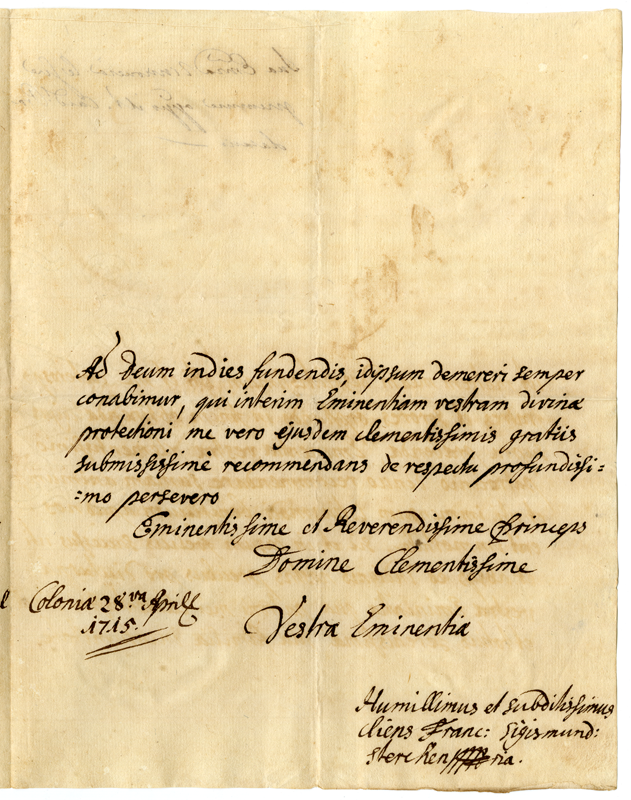 Ad Deum indies fundendis, idipsum demereri semper
conabimur, qui interim Eminentiam vestram divinæ
protectioni me vero ejusdem clementissimis gratiis
submississimè recommendans de respectu profundissi=
=mo persevero
Eminentissime et Reverendissime Princeps
Domine Clementissime
Coloniæ 28va Aprilis
1715.
Vestræ Eminentiæ
Humillimus et subditissimus
cliens Franc: Sigismund: